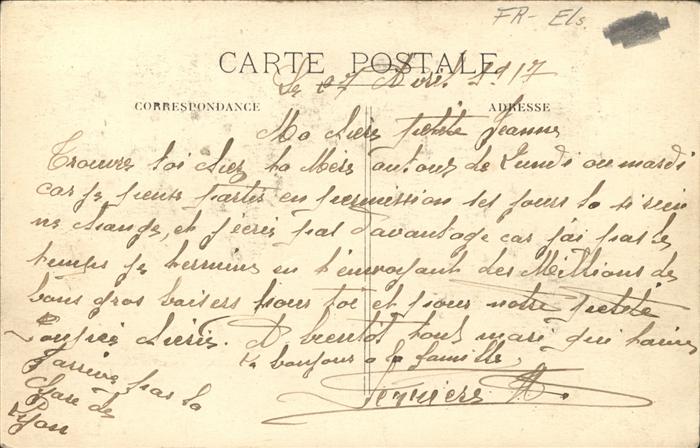 FR- Els.
CARTE POSTALE
Le 27 Avril 1917
CORRESPONDANCE
ADRESSE
Ma chérie petite Jeanne
Trouve toi chez ta Mère autour de Lundi ou mardi
car je peux partir en permission ses jours la si rien
ne change, et j'écris pas d'avantage car j'ai pas le
temps je termine en t'envoyant des Millions de
bons gros baisers pour toi et pour notre petite
Poupée chérie. A bientôt ton mari qui
bonjour a la famille,
J'arrive par la
Gare de
Lyon
A.